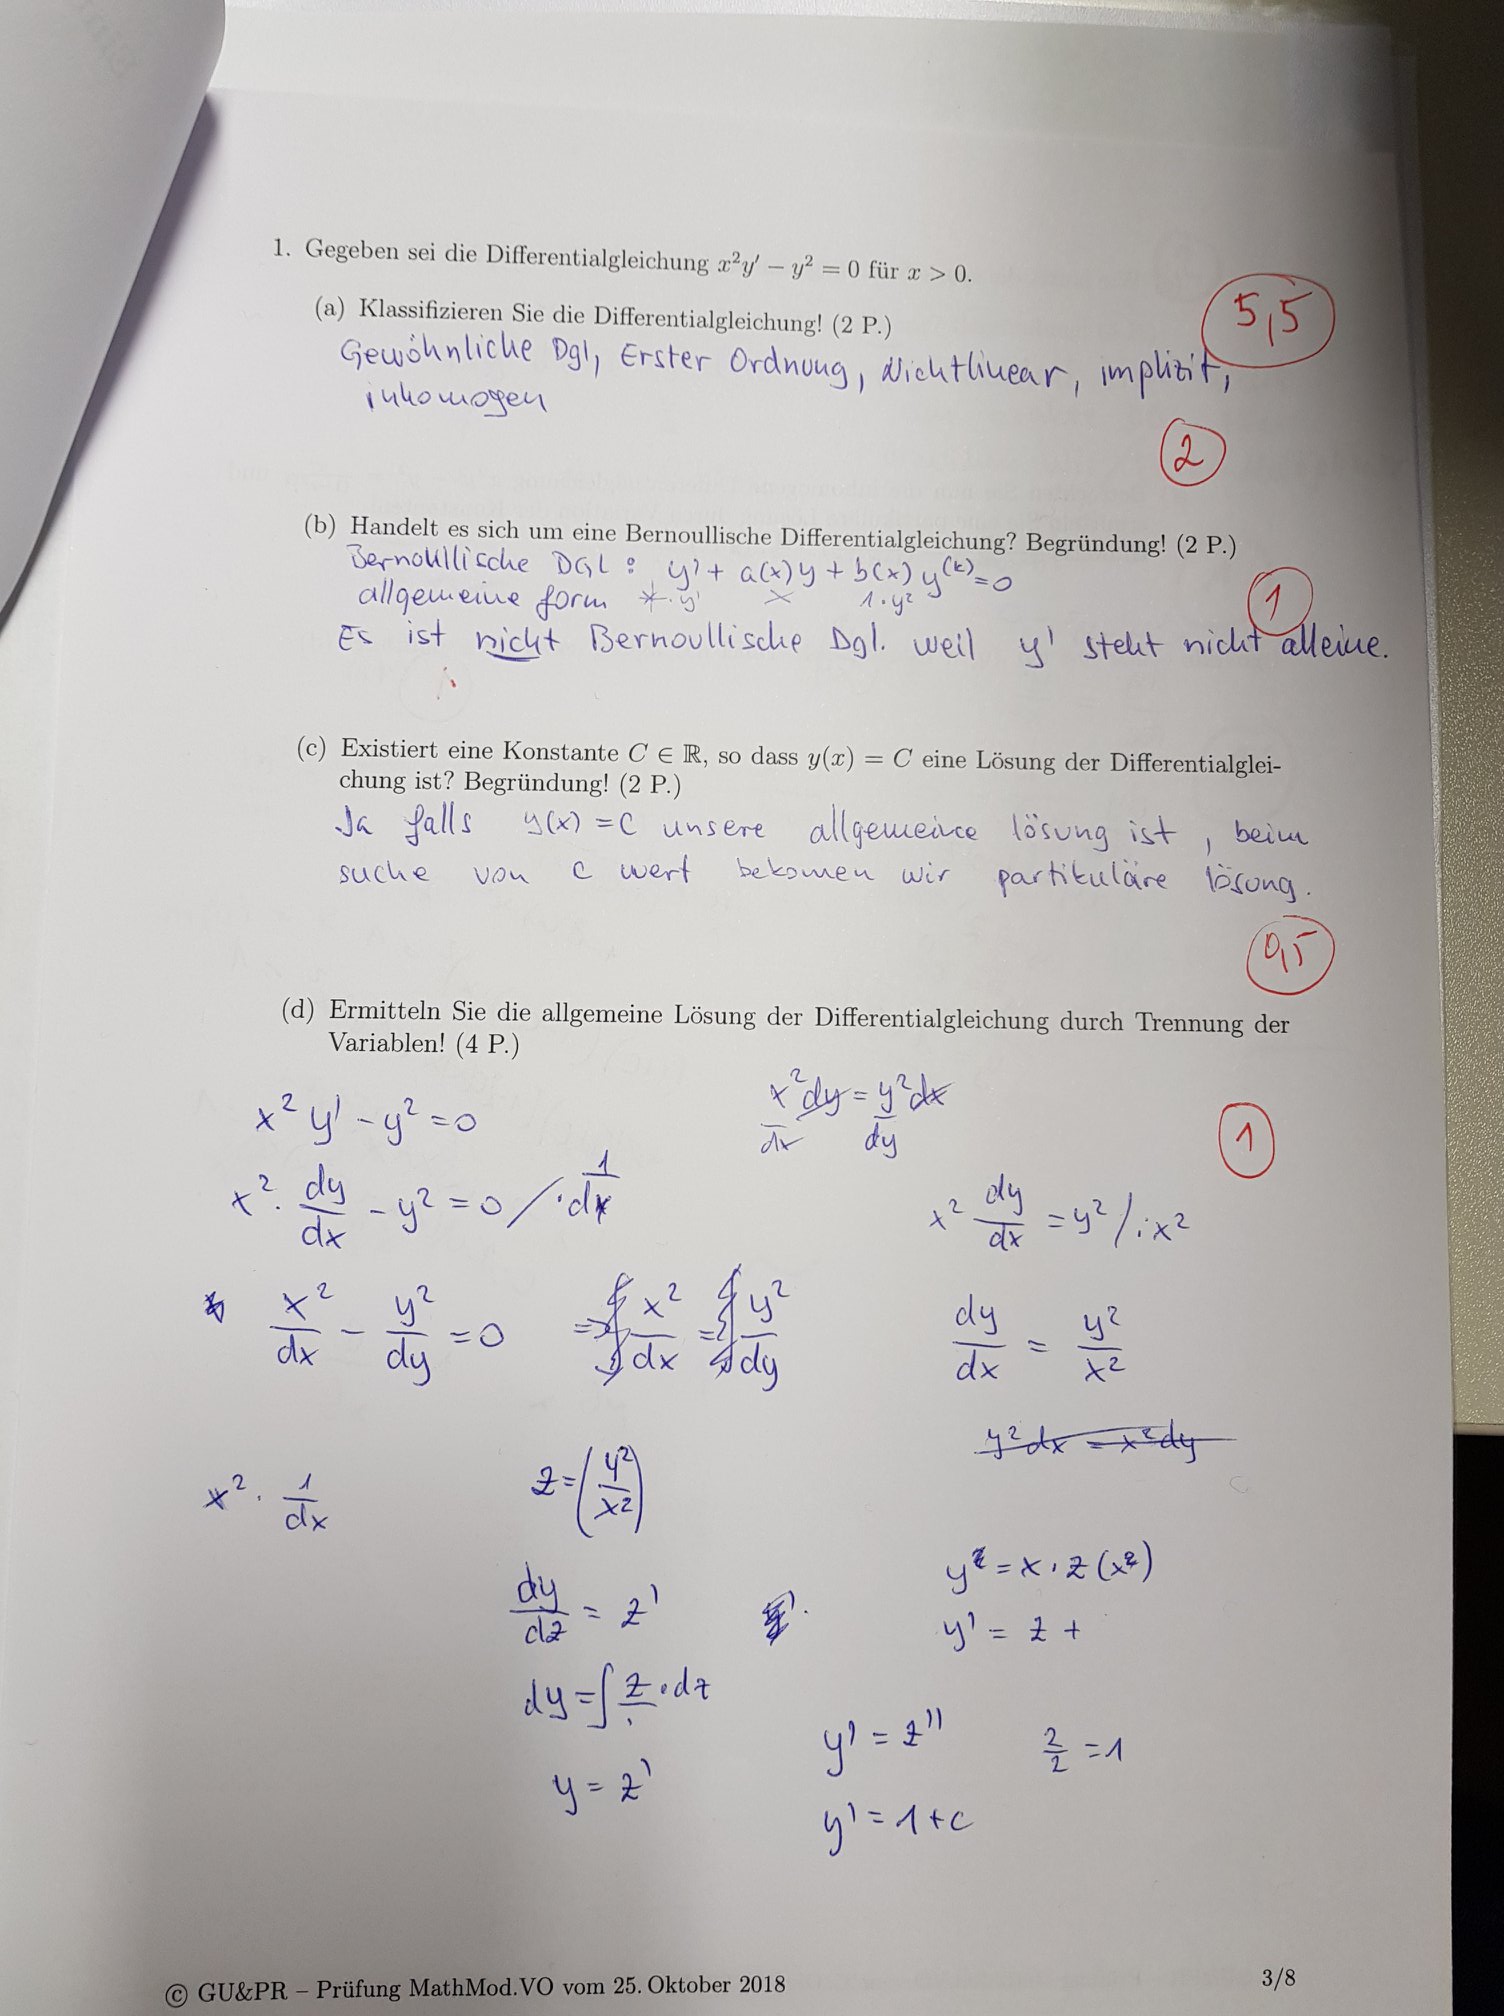 1. Gegeben sei die Differentialgleichung x²y′ − y² = 0 für x > 0.
(a) Klassifizieren Sie die Differentialgleichung! (2 P.)
5,5
Gewöhnliche Dgl, Erster Ordnung, Nichtlinear, implizit,
inhomogen
2
(b) Handelt es sich um eine Bernoullische Differentialgleichung? Begründung! (2 P.)
Bernoullische DGL : y' + a(x)y + b(x) y^(k) = 0
allgemeine form * · y' x 1 · y²
1
Es ist nicht Bernoullische Dgl. weil y' steht nicht alleine.
(c) Existiert eine Konstante C ∈ ℝ, so dass y(x) = C eine Lösung der Differentialglei-
chung ist? Begründung! (2 P.)
Ja falls y(x) = C unsere allgemeine lösung ist, beim
suche von C wert bekomen wir partikuläre lösung.
0,5
(d) Ermitteln Sie die allgemeine Lösung der Differentialgleichung durch Trennung der
Variablen! (4 P.)
1
x² y' − y² = 0
x² · dy/dx − y² = 0 / · 1/dx
x²/dx − y²/dy = 0 => ∫ x²/dx = ∫ y²/dy
x² · 1/dx
x² dy/dx = y² dx/dy
z = (y²/x²)
dy/dz = z'
dy = ∫ z · dz
y = z'
x² dy/dx = y² / : x²
dy/dx = y²/x²
y² dx = x² dy
y² = x · z (x²)
y' = z +
y' = z''
2/2 = 1
y' = 1 + c
© GU&PR – Prüfung MathMod.VO vom 25. Oktober 2018
3/8